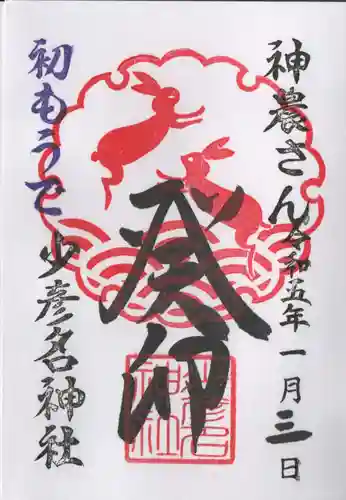 神農さん
令和五年一月三日
癸卯
初もうで
少彦名神社
少彦名神社